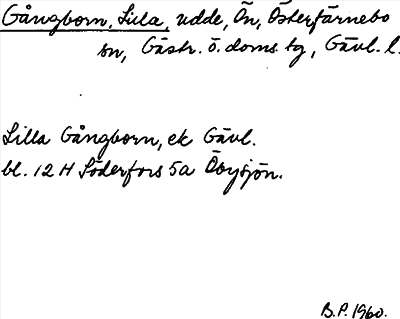 Gångborn, Lilla, udde, Ön, Österfärnebo
sn, Gästr. ö. doms. tg, Gävl. l.
Lilla Gångborn, ek Gävl.
bl. 12 H Söderfors 5a Öbysjön.
B.P. 1960.